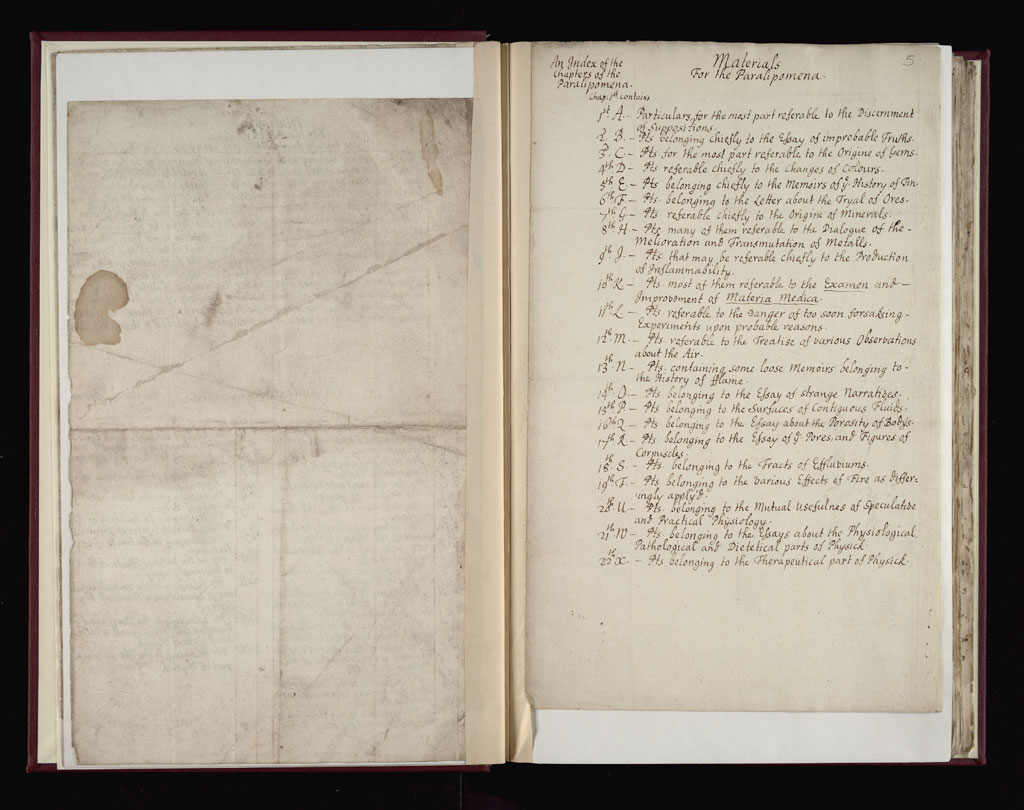 5
An Index of the
Chapters of the
Paralipomena.
Materials
For the Paralipomena.
Chap: 1st. contains
1st. A. - Particulars, for the most part referable to the Discernment
of Suppositions.
2d. B. - Pts belonging chiefly to the Essay of improbable Truths.
3d. C. - Pts for the most part referable to the Origine of Gems.
4th. D - Pts referable chiefly to the Changes of Colours.
5th. E. - Pts belonging chiefly to the Memoirs of ye. History of Tin.
6th. F. - Pts. belonging to the Letter about the Tryal of Ores.
7th. G. - Pts. referable chiefly to the Origine of Minerals.
8th. H - Pts. many of them referable to the Dialogue of the -
Melioration and Transmutation of Metalls.
9th. J. - Pts. that may be referable chiefly to the Production
of Inflammability.
10th. K - Pts. most of them referable to the Examen and -
Improvement of Materia Medica.
11th. L - Pts. referable to the Danger of too soon forsaking -
Experiments upon probable reasons.
12th. M. - Pts referable to the Treatise of various Observations
about the Air.
13th. N - Pts. containing some loose Memoirs belonging to -
the History of fflame.
14th. O - Pts. belonging to the Essay of strange Narratives.
15th. P. - Pts belonging to the Surfaces of Contiguous Fluids.
16th. Q - Pts belonging to the Essay about the Porosity of Bodys.
17th. R - Pts. belonging to the Essay of ye. Pores, and Figures of
Corpuscles.
18th. S - Pts. belonging to the Tracts of Effluviums.
19th. T. - Pts. belonging to the various Effects of Fire as differ-
ingly apply'd.
20th. U - Pts. belonging to the Mutual Usefulnes of Speculative
and Practical Physiology.
21th. W - Pts. belonging to the Essays about the Physiological,
Pathological and Dietetical parts of Physick.
22th. X. - Pts belonging to the Therapeutical part of Physick.